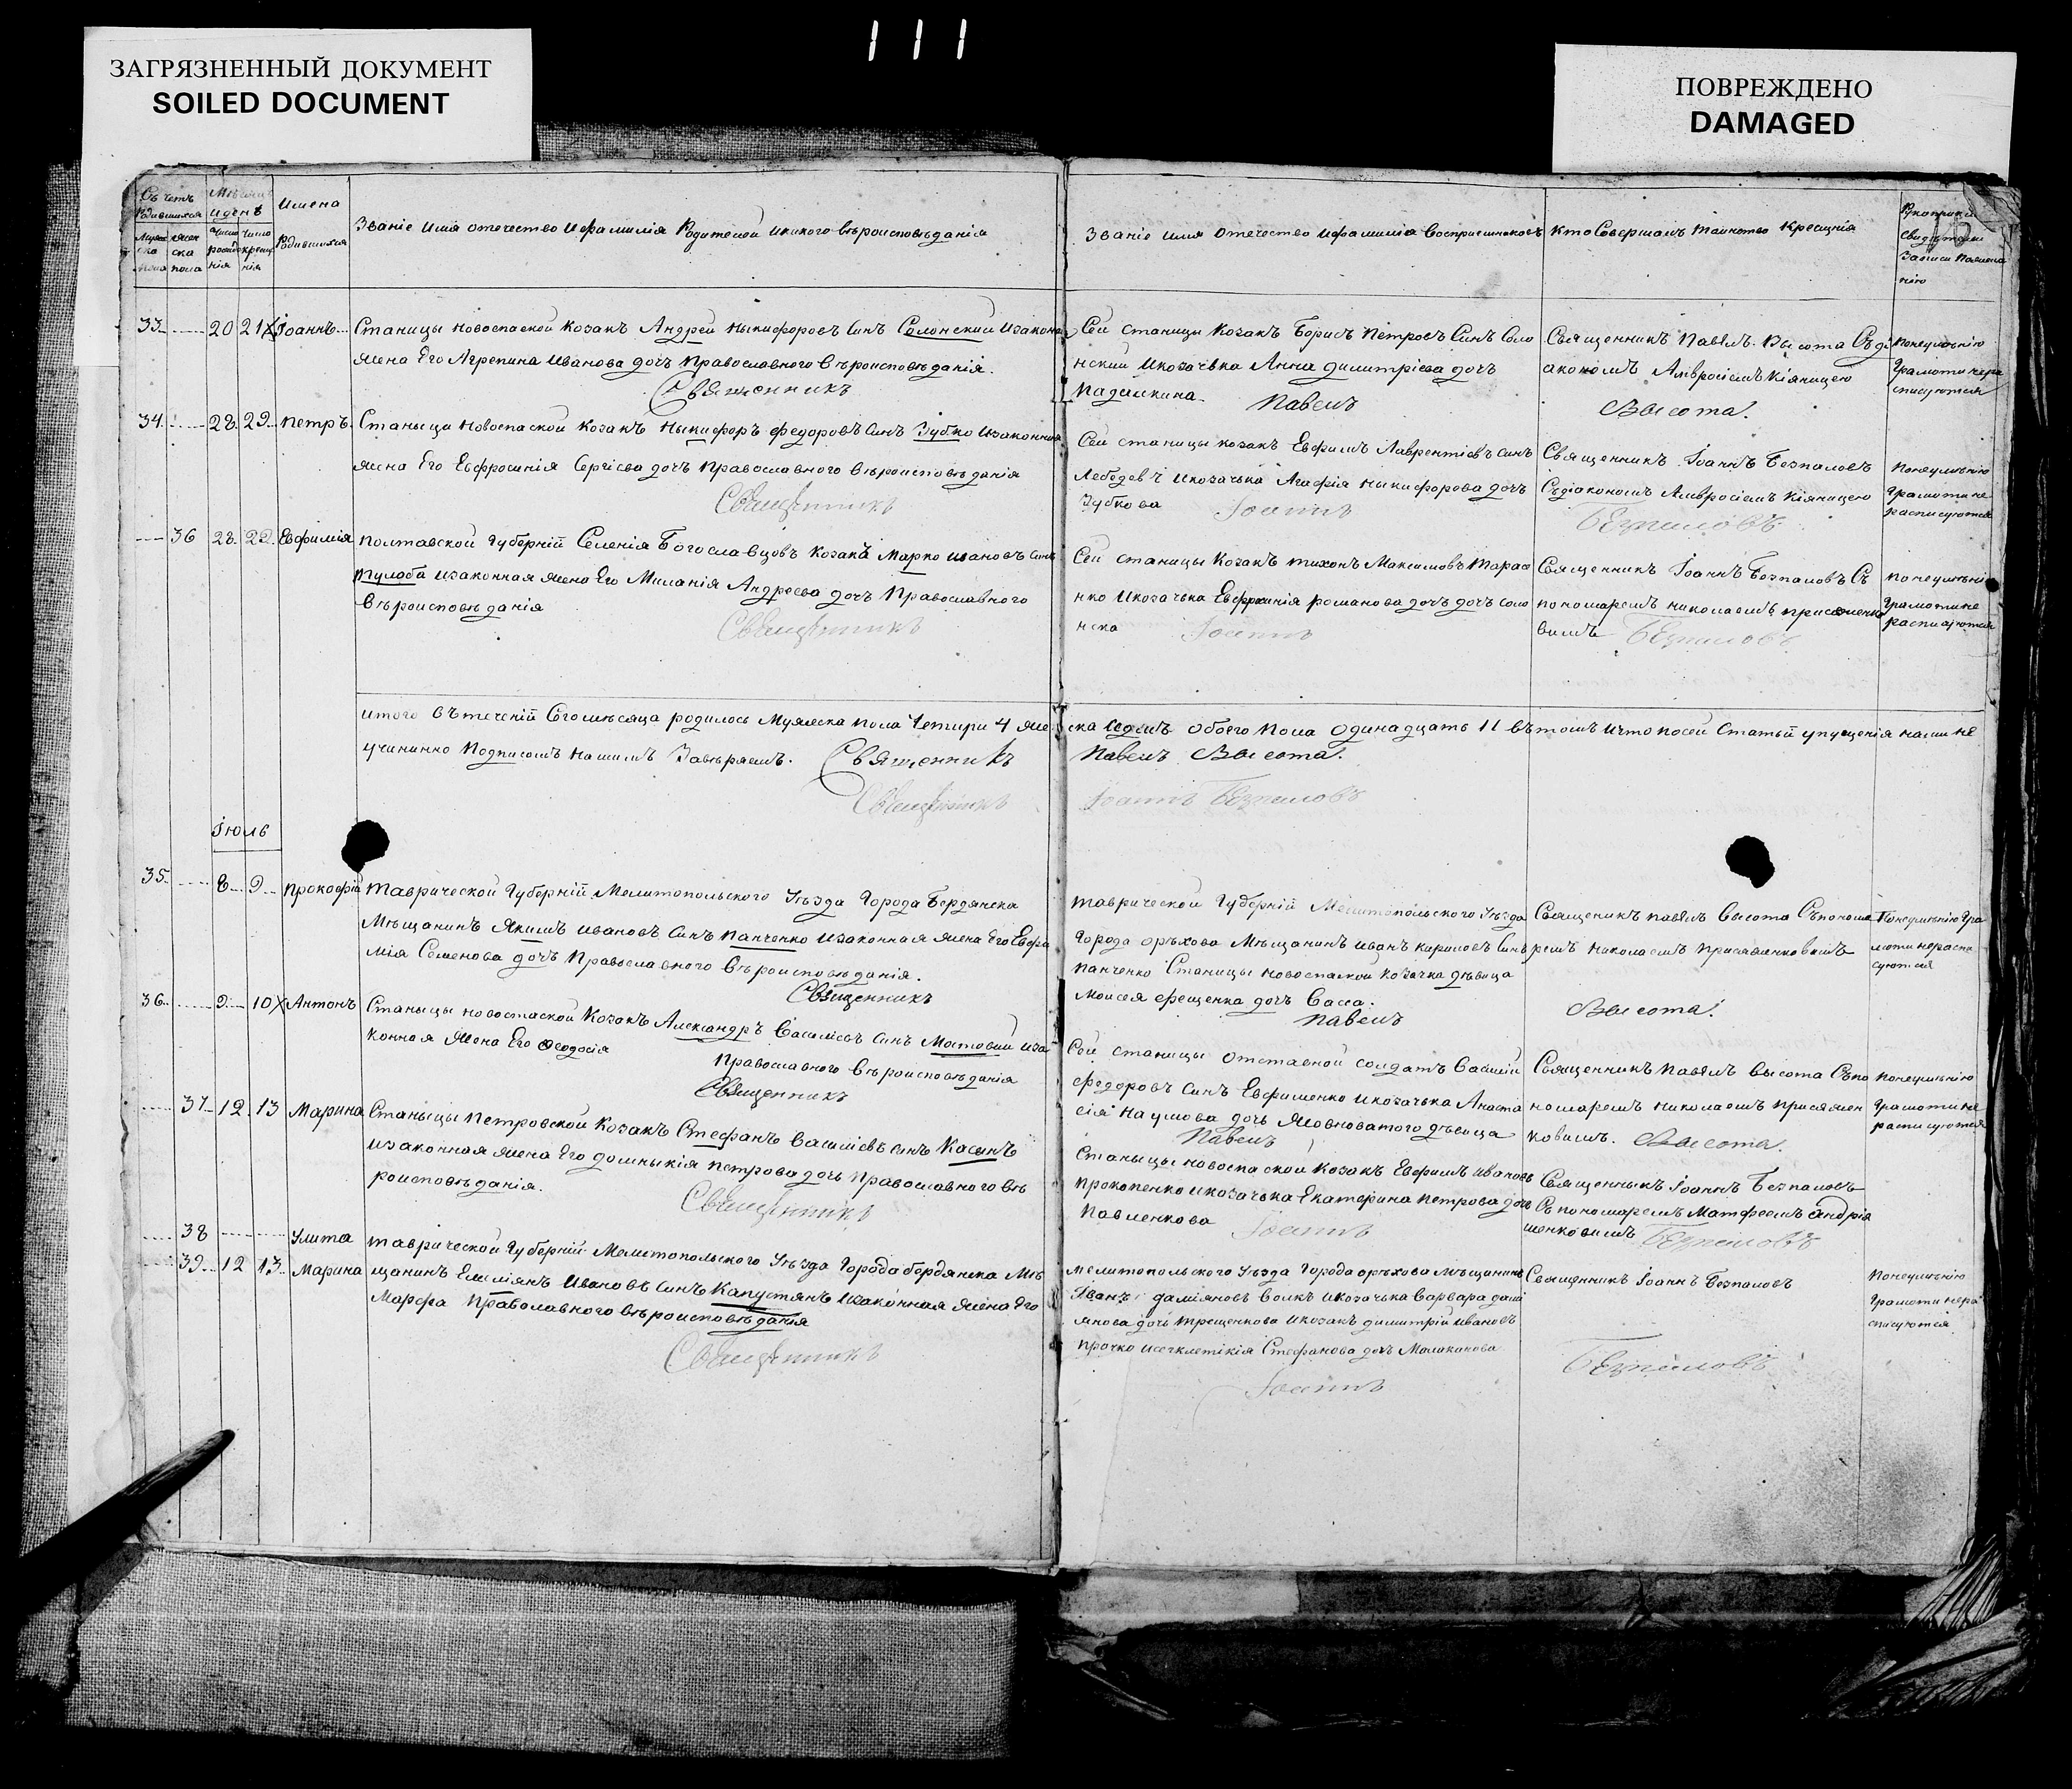 111
ЗАГРЯЗНЕННЫЙ ДОКУМЕНТ
SOILED DOCUMENT
ПОВРЕЖДЕНО
DAMAGED
Счетъ Родившихся
Мужеска пола
женска пола
Мѣсяцъ и день
число рожденія
число крещенія
Имена Родившихся
Званіе имя отечество и фамилія Родителей и какого вѣроисповѣданія
Званіе имя отечество и фамилія воспріемниковъ
Кто Совершалъ таинство Крещенія
33 20 21 Іоаннъ
Станицы новоспаской козакъ Андрей Никифоровъ синъ Солонский и законна
жена Его Агрепина Иванова дочъ Православного вѣроисповѣданія.
Священникъ
Сей станицы Козакъ Борисъ Петровъ Синъ Соло
нский и козачька Анна димитрієва дочъ
Падалкина
Павелъ
Священникъ Павелъ Высота Съ ді
акономъ Амвросіемъ Кіяницею
Высота.
По неумѣнію
Грамоти не ра
списуются
34 28 29 Петръ
Станыци Новоспаской козакъ Ныкифоръ Федоровъ синъ Зубко и законная
жена Его Евфросинія Сергієва дочъ православного вѣроисповѣданія
Священникъ
Сей станицы козакъ Евфимъ Лаврентієвъ синъ
Лебедевъ и козачька Агафія Ныкифорова дочъ
Зубкова
Іоаннъ
Священникъ Іоаннъ Безпаловъ
Съ діакономъ Амвросіемъ Кіяницею
Безпаловъ
По неумѣнію
Грамоти не
расписуются
36 28 29 Евфимія
Полтавской Губерній Селенія Богославцовъ козакъ Марко Ивановъ синъ
Тулюба и законная жена Его Миланія Андреева дочъ Православного
вѣроисповѣданія
Священникъ
Сей станицы Козакъ Тихонъ Максимовъ Тарас
нко и козачька Евфросинія романова дочъ дочъ соло
нска
Іоаннъ
Священникъ Іоаннъ Безпаловъ Съ
пономаремъ николаемъ присяженко
вимъ
Безпаловъ
По неумѣні
Грамоти не
расписуются
итого въ теченій Сего мѣсяца родилось Мужеска пола Четири 4 же
ска Седмъ обоего пола одинадцать 11 въ томъ и что по сей Статьй упущенія нами не
учининно Подписомъ нашимъ Завѣряемъ. Священникъ
Павелъ Высота.
Священникъ
Іоаннъ Безпаловъ
Іюль
35 8 9 Прокофій
Таврической Губерній Мелитопольского Уѣзда Города Бердянска
Мѣщанинъ Якимъ Ивановъ Синъ Панченко и законная жена Его Евфи
мія Семенова дочъ Православного вѣроисповѣданія.
Священникъ
Таврической Губерній Мелитопольского Уѣзда
Города орѣхова Мѣщанинъ Иванъ кириловъ Синъ
Панченко Станицы новоспаской козачка дѣвица
Моисея Ерещенка дочъ Васса.
Павелъ
Священикъ павелъ Высота Съ понома
ремъ Николаемъ Присяженковимъ
Высота.
По неумѣнію Гра
моти не распи
суются
36 9 10 Антонъ
Станыцы новоспаской Козакъ Александръ Василієвъ синъ Мотовий и за
конная жена Его Феодосія
Православного вѣроисповѣданія
Священникъ
Сей станицы отставной солдатъ Василій
Федоровъ синъ Евфименко и козачька Анаста
сія Наумова дочъ Жовноватого дѣвица
Павелъ
Священникъ Павелъ Высота Съ по
номаремъ Николаемъ присяжен
ковимъ. Высота.
По неумѣнію
Грамоти не
расписуются
37 12 13 Марина
Станыцы Петровской Козакъ Стефанъ Василієвъ синъ Касынъ
и законная жена Его домныкія петрова дочъ Православного вѣ
роисповѣданія.
Священникъ
Станыцы новоспаской Козакъ Евфимъ Ивановъ
Прокопенко и козачька Екатерина петрова дочъ
Павленкова
Іоаннъ
Священныкъ Іоаннъ Безпаловъ
Съ пономаремъ Матфеемъ андрія
шенковимъ
Безпаловъ
38 Улита
39 12 13 Марина
Таврической Губерній Мелитопольского Уѣзда Города бердянска Мѣ
щанинъ Емиліянъ Ивановъ синъ Капустянъ и законная жена Его
Марфа Православного вѣроисповѣданія
Священникъ
Мелитопольского Уѣзда Города орѣхова мѣщанинъ
Іванъ даміяновъ волкъ и козачька варвара дамі
янова дочъ Трещенкова и козакъ димитрій ивановъ
прочко Стефанова дочъ Молоканова
Іоаннъ
Священникъ Іоаннъ Безпаловъ
Безпаловъ
По неумѣнію
Грамоти не ра
списуются